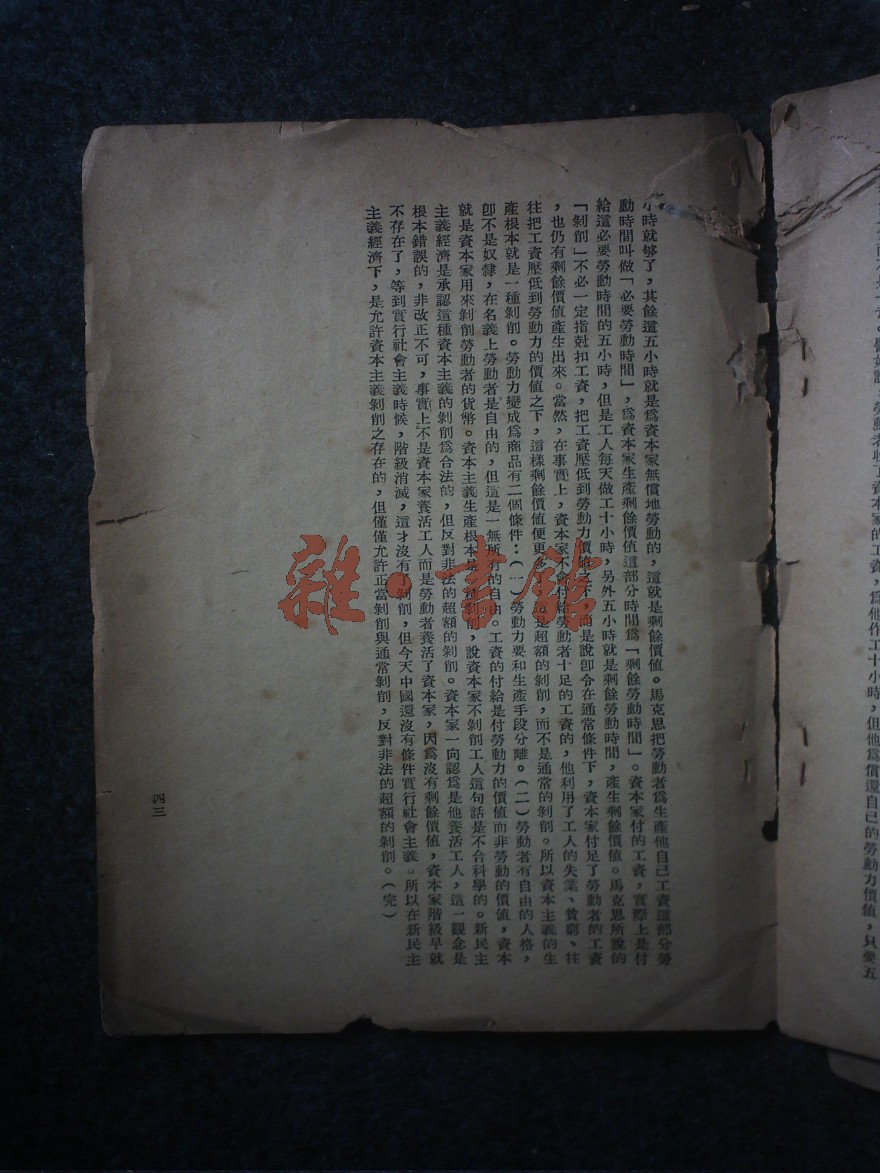 值不是一
勞動者收了資本家的工資，為他作工十小時，但他為償還自己的勞動力價值，只要五
小時就够了，其餘還五小時就是為資本家無償地勞動的，這就是剩餘價值。馬克思把勞動者為生產他自己工資這部分勞
動時間叫做「必要勞動時間」，為資本家生產剩餘價值這部分時間為「剩餘勞動時間」。資本家付的工資，實際上是付
給這必要勞動時間的五小時，但是工人每天做工十小時，另外五小時就是剩餘勞動時間，產生剩餘價值。馬克思所說的
「剝削」不必一定指尅扣工資，把工資壓低到勞動力價值之下，而是說卽令在通常條件下，資本家付足了勞動者的工資
，也仍有剩餘價值產生出來。當然，在事實上，資本家不會付給勞動者十足的工資的，他利用了工人的失業、貧窮、往
往把工資壓低到勞動力的價值之下，這樣剩餘價值便更多 是超額的剝削，而不是通常的剝削。所以資本主義的生
產根本就是一種剝削。勞動力變成為商品有二個條件：（一）勞動力要和生產手段分離。（二）勞動者有自由的人格，
卽不是奴隸，在名義上勞動者是自由的，但這是一無所有的自由。工資的付給是付勞動力的價值而非勞動的價值，資本
就是資本家用來剝削勞動者的貨幣。資本主義生產根本是一種剝削，說資本家不剝削工人這句話是不合科學的。新民主
主義經濟是承認這種資本主義的剝削為合法的，但反對非法的超額的剝削。資本家一向認為是他養活工人，這一觀念是
根本錯誤的，非改正不可，事實上不是資本家養活工人而是勞動者養活了資本家，因為沒有剩餘價值，資本家階級早就
不存在了，等到實行社會主義時候，階級消滅，這才沒有了剝削，但今天中國還沒有條件實行社會主義。所以在新民主
主義經濟下，是允許資本主義剝削之存在的，但僅僅允許正當剝削與通常剝削，反對非法的超額的剝削。（完）
四三
雜·書館